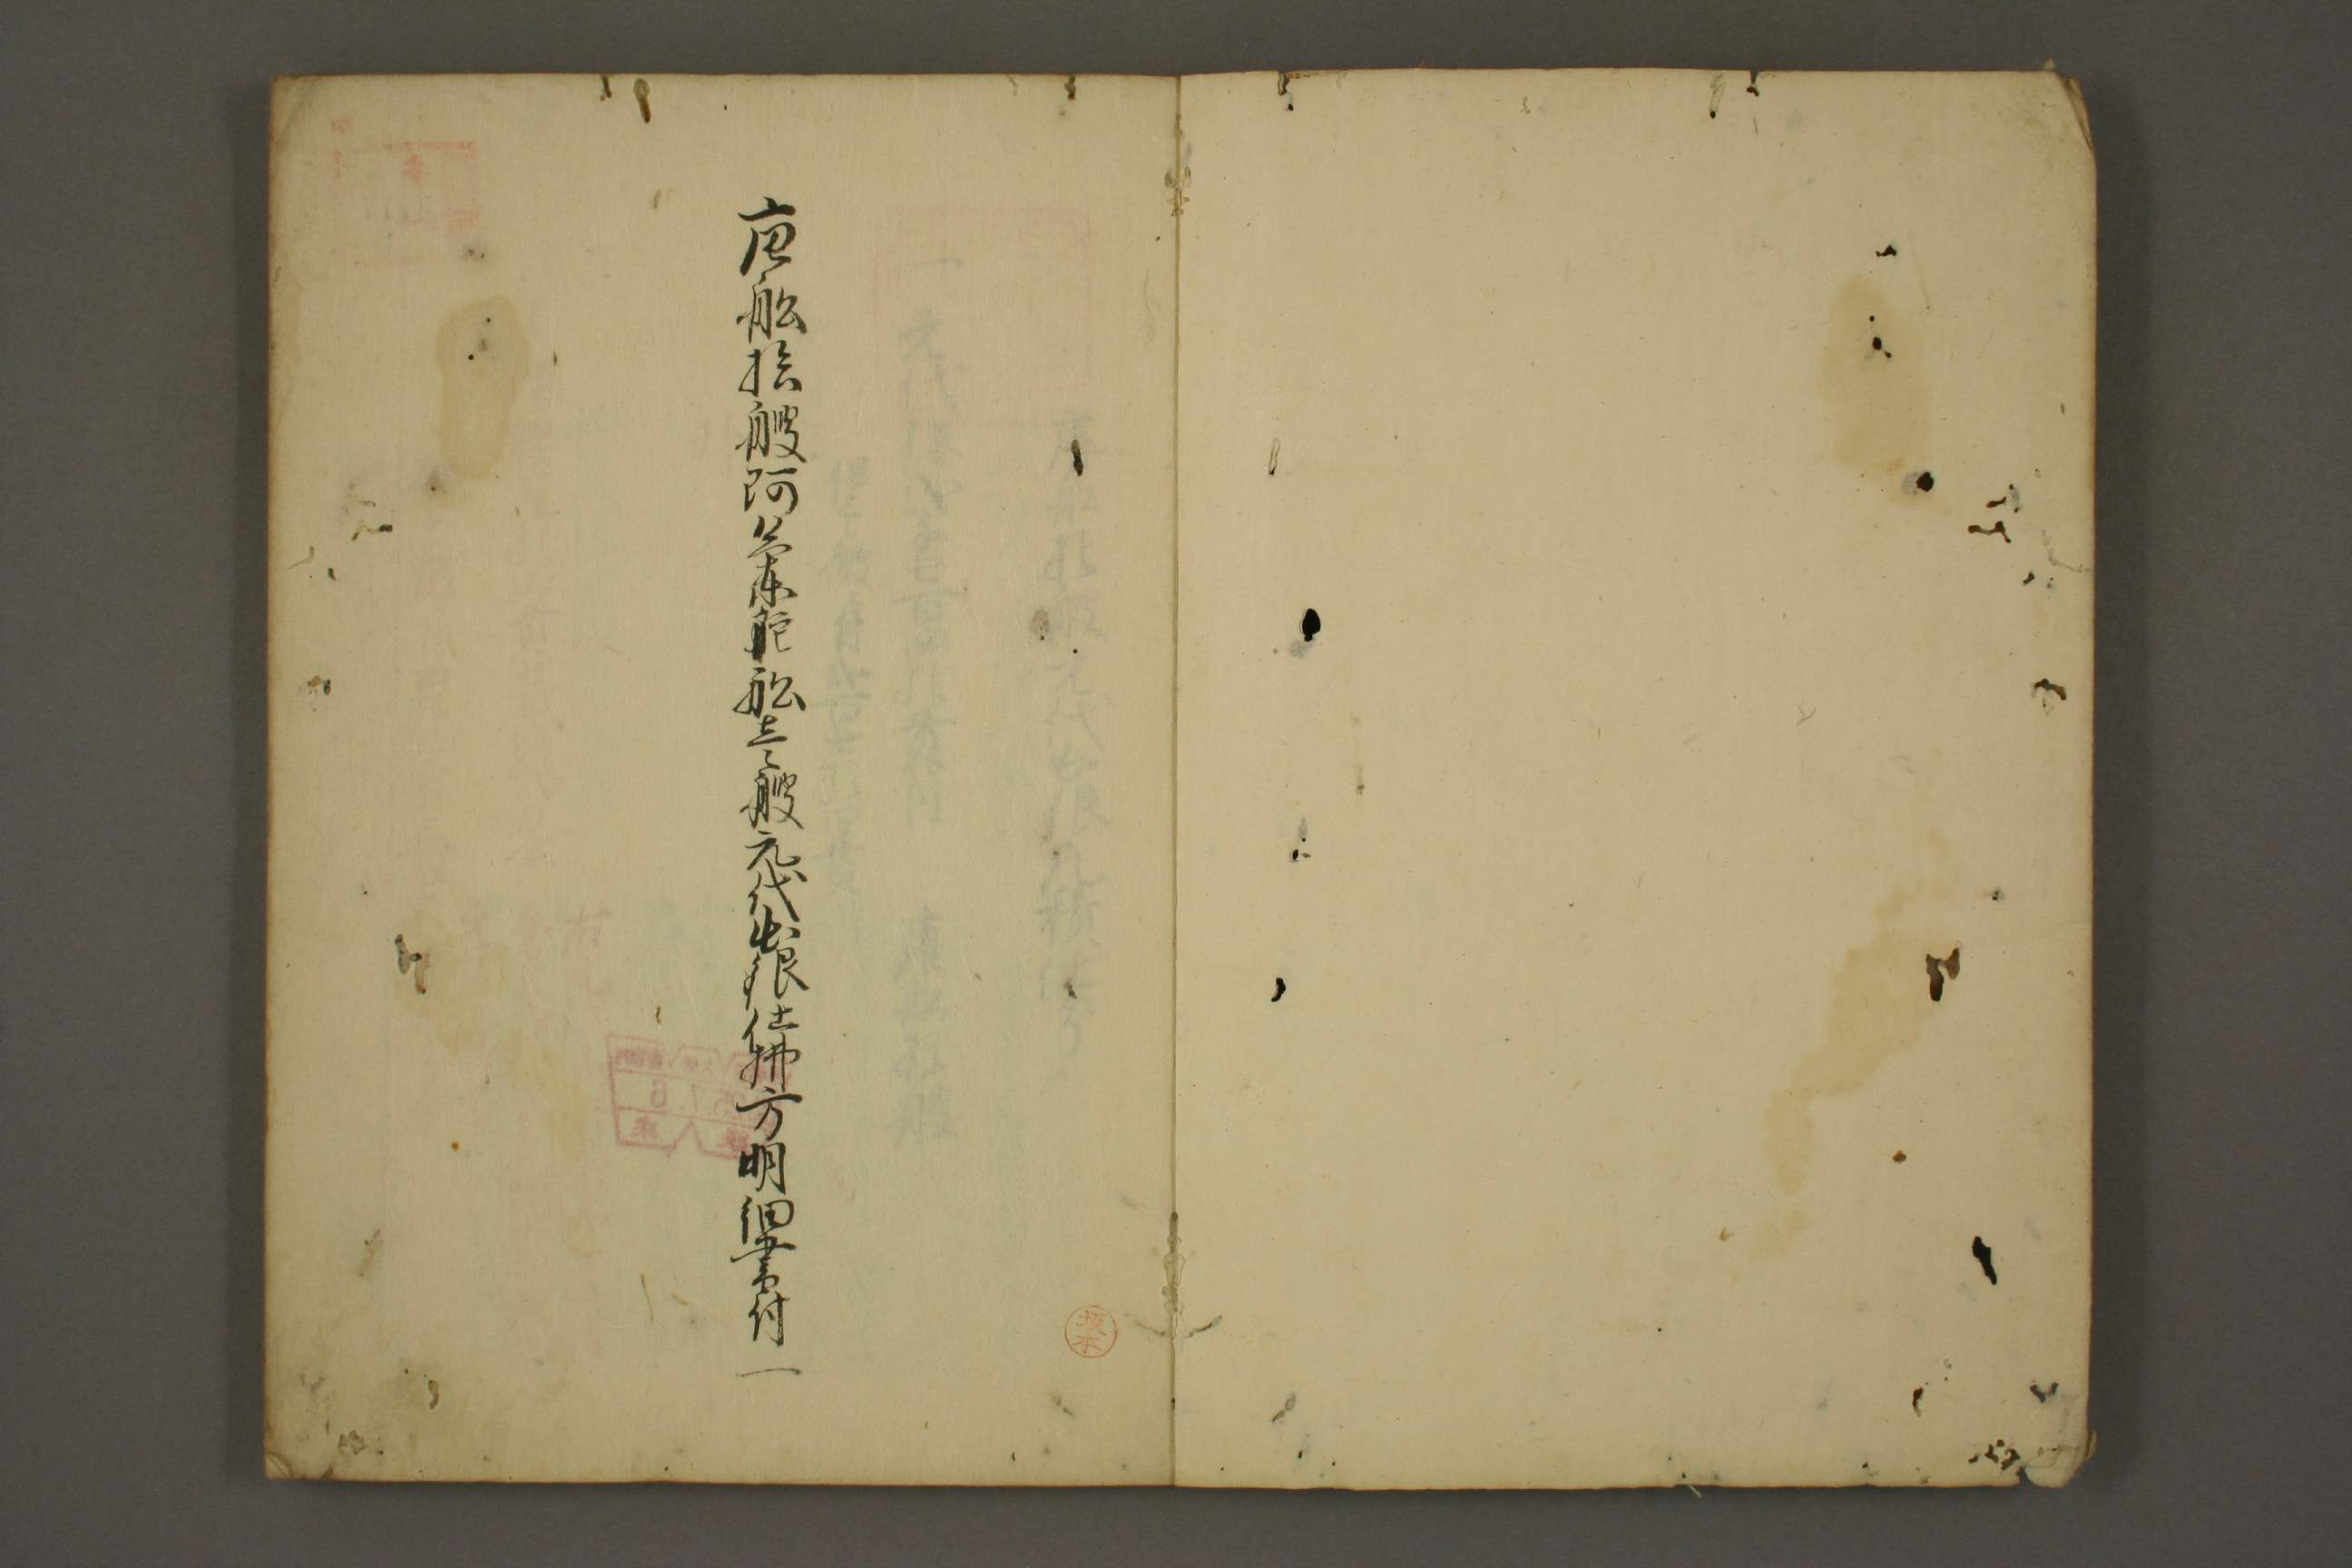 唐船拾艘阿蘭陀船壱艘元代出銀仕拂方明細書付一
坂本